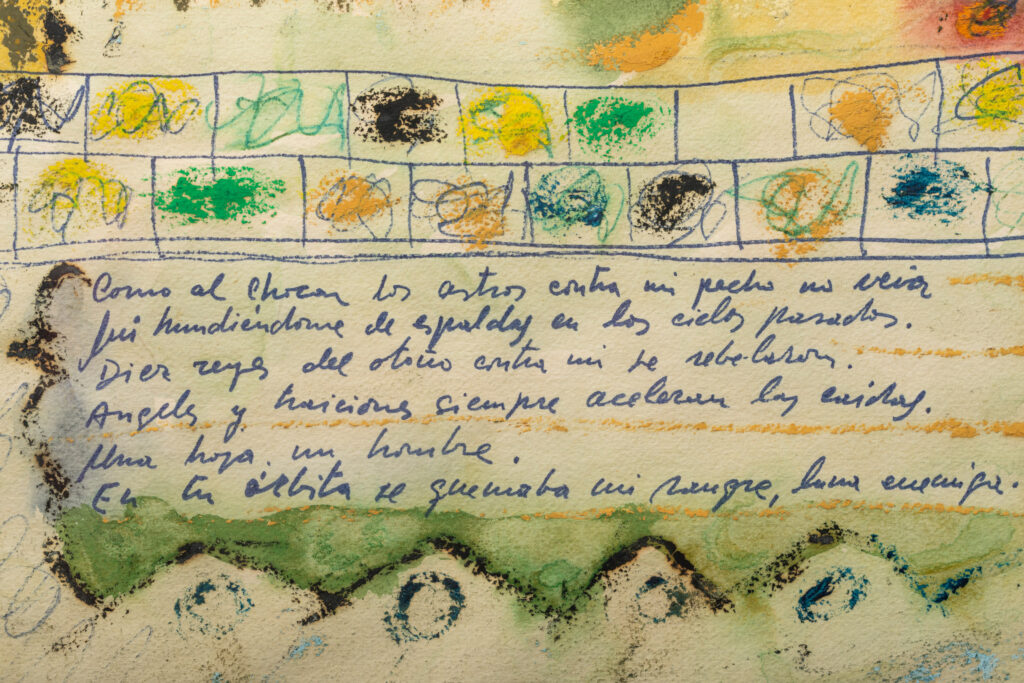 Como al chocar los astros contra mi pecho no veía
fuí hundiéndome de espaldas en los cielos pasados.
Diez reyes del otoño contra mi se rebelaron.
Angeles y traiciones siempre aceleran las caídas.
Una hoja, un hombre.
En tu órbita se quemaba mi sangre, luna enemiga.